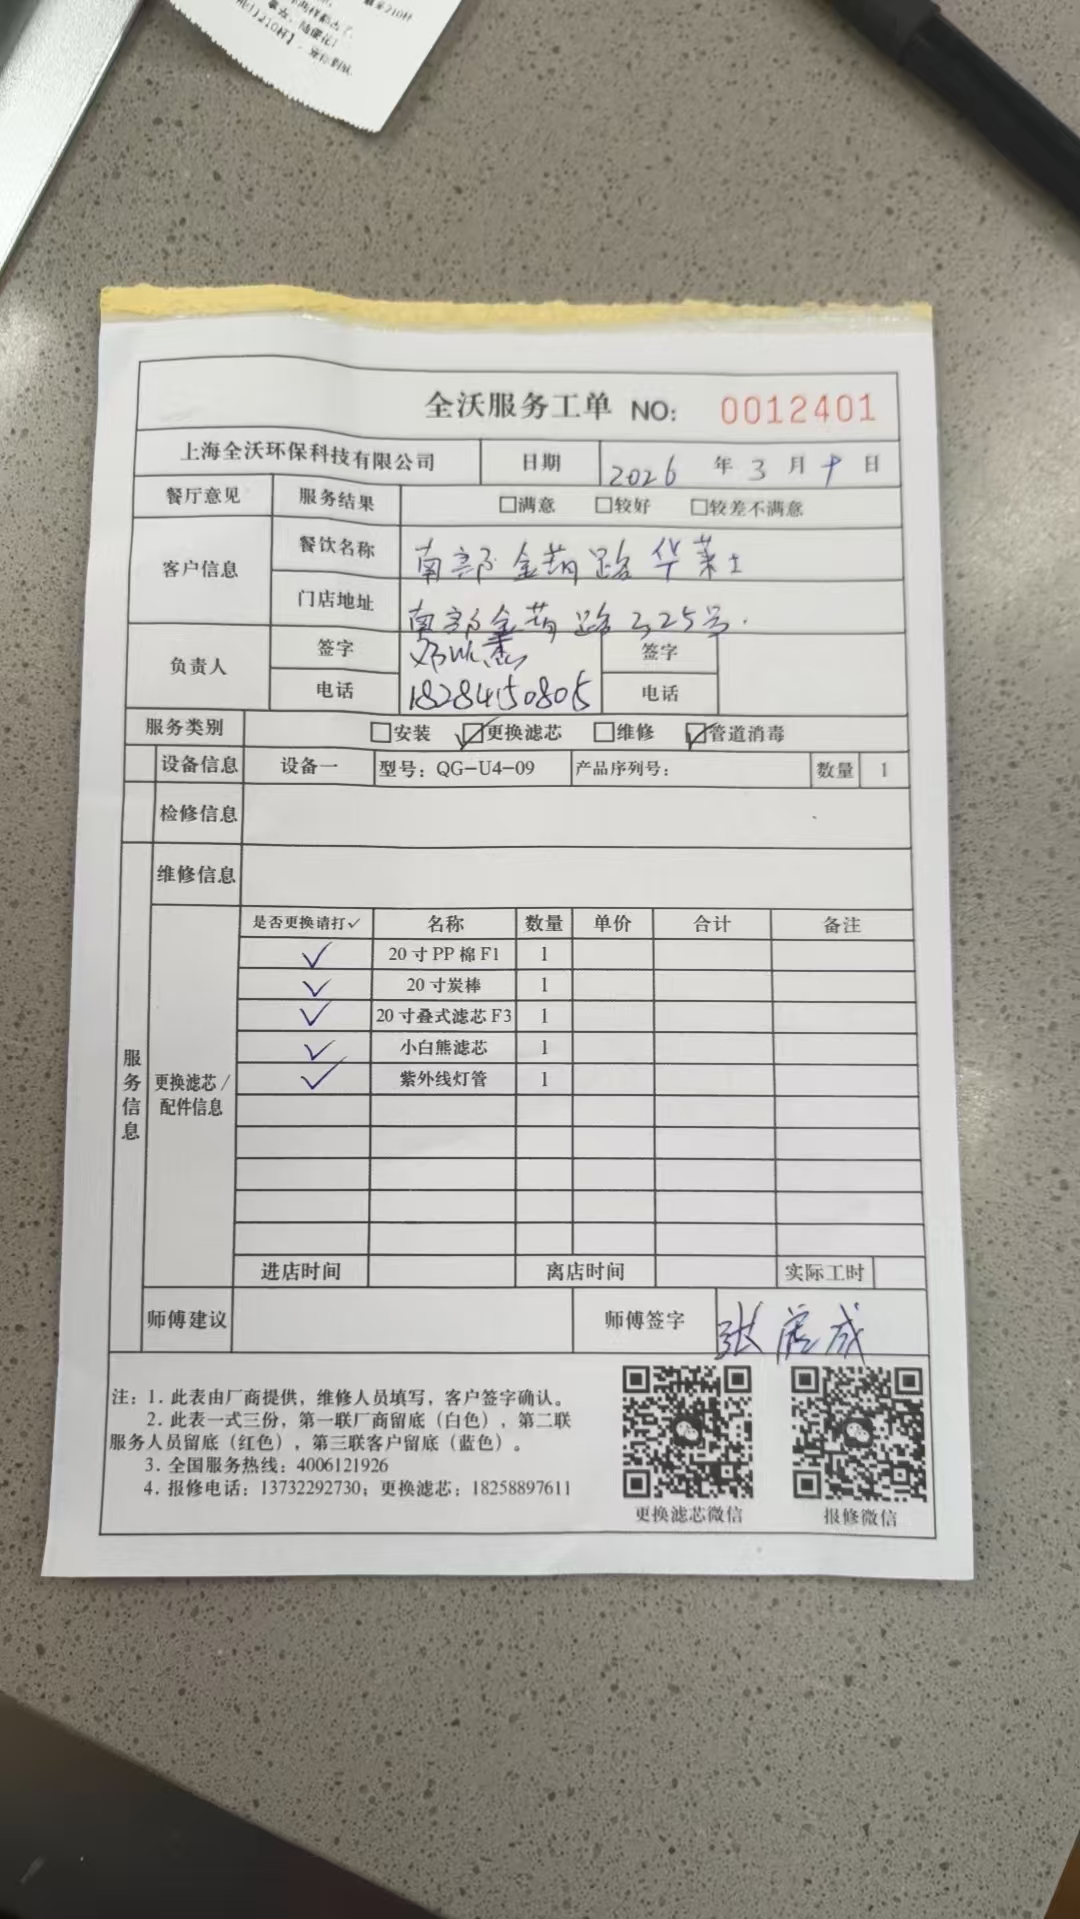 全沃服务工单 NO: 0012401
上海全沃环保科技有限公司 日期 2026 年 3 月 日
餐厅意见 服务结果 □满意 □较好 □较差不满意
客户信息 餐饮名称 南部金葫路华莱士
门店地址 南部金葫路325号.
负责人 签字 签字
电话 18284150805 电话
服务类别 □安装 ☑更换滤芯 □维修 ☑管道消毒
设备信息 设备一 型号：QG-U4-09 产品序列号： 数量 1
检修信息
维修信息
服务信息
更换滤芯/
配件信息
是否更换请打✓ 名称 数量 单价 合计 备注
✓ 20寸PP棉F1 1
✓ 20寸炭棒 1
✓ 20寸叠式滤芯F3 1
✓ 小白熊滤芯 1
✓ 紫外线灯管 1
进店时间 离店时间 实际工时
师傅建议 师傅签字 张 成
注：1. 此表由厂商提供，维修人员填写，客户签字确认。
2. 此表一式三份，第一联厂商留底（白色），第二联
服务人员留底（红色），第三联客户留底（蓝色）。
3. 全国服务热线：4006121926
4. 报修电话：13732292730；更换滤芯：18258897611
更换滤芯微信 报修微信